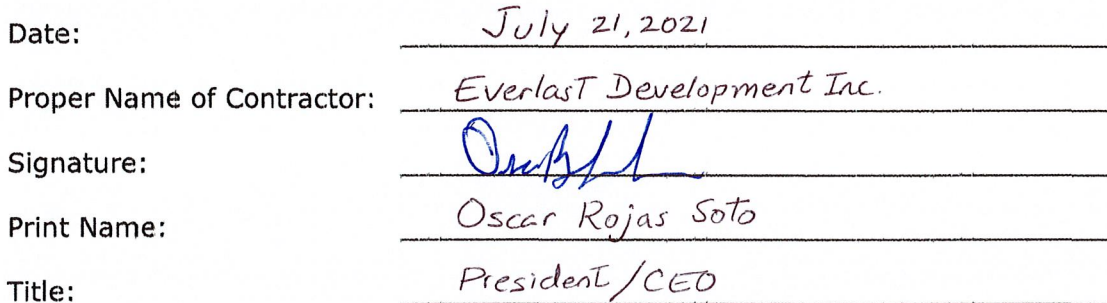 Date: July 21, 2021
Proper Name of Contractor: Everlast Development Inc.
Signature:
Print Name: Oscar Rojas Soto
Title: President/CEO